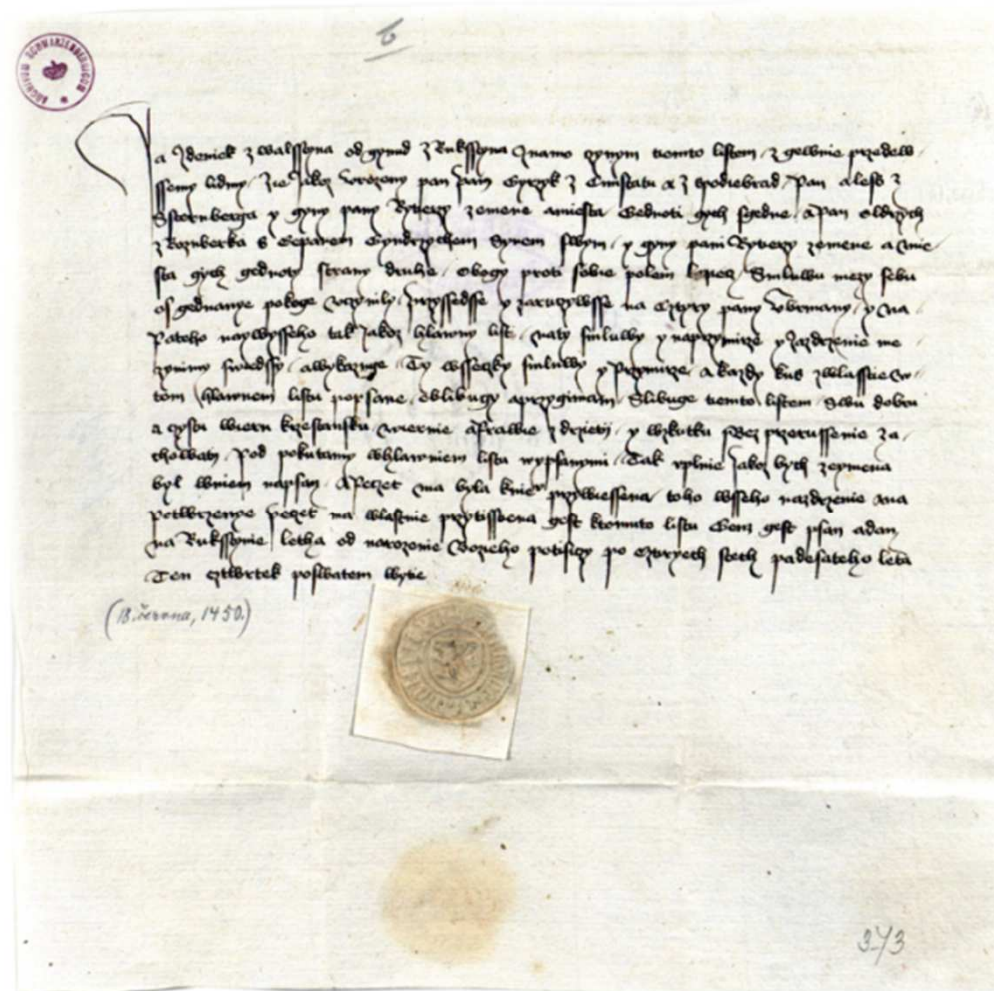 6
ARCHIVUM SCHWARZENBERGICUM
Ja Zdeniek z walssyna odginud z Rukssyna Znamo czynym tiemto listem z gewnie przedew
ssemy lidmy Zie jakoz Urozeny pan pan Gyrzyk z Cunstatu a z podiebrad Pan aless z
Ssternberga y gyny pany Rytierzy zemene amiesta Gednoti gych sgedne Apan oldrzych
z Rozmberka s Geparem Gyndrzychem Synem swym y gyny pani Rytierzy zemene a mie
sta gych gednoty strany druhe obogy proti sobie polem lezucz Smluwu mezy sebu
o sgednanye pokoge uczynily przissedsse y zaruczywsse na cztyry pany Ubrmany y na
Pateho naywysseho tak jakoz hlawny list naty smluwy y naprzymirze y
zynimy swiedssy awykazuge Ty wssecky smluwy y Przymirze a kazdy kus zwlasstie w
tom hlawnem listu popsane oblibugy aprzygimam Slibuge tiemto listem Swu dobru
a czystu wieru krzestansku wiernie aprawie zdrzieti y wskutku Bez przerussenie za
chowaty Pod pokutamy whlawniem listu wypsanymi Tak uplnie jakoz bych zeymena
byl wniem napsan A Peczet ma byla kniem przywiessena toho wsseho nazdrzenie ana
potwrzenye peczet ma wlastnie przytisstiena gest ktomuto listu Genz gest psan adan
na Rukssynie letha od narozenie Bozieho potisiczy po cztyrzech stech padesateho leta
Ten cztwrtek poswatem wytie
(18. června, 1450.)
373